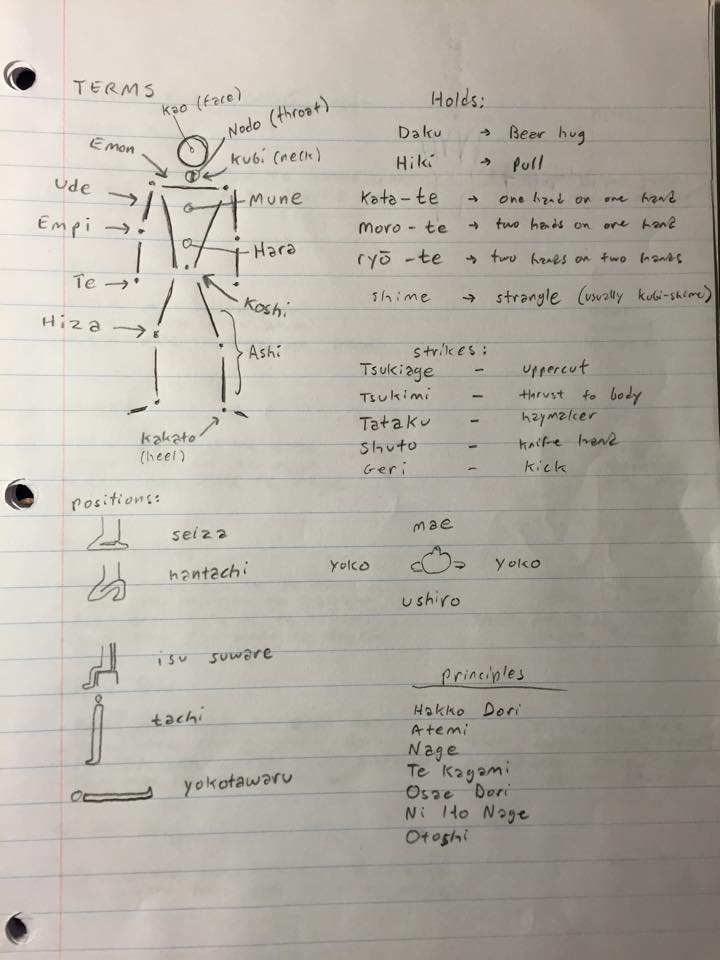 TERMS
Kao (face)
Nodo (throat)
Emon
Kubi (neck)
Ude
Mune
Empi
Hara
Te
Koshi
Hiza
Ashi
Kakato
(heel)
Holds:
Daku → Bear hug
Hiki → Pull
Kata-te → one hand on one hand
moro-te → two hands on one hand
ryō-te → two hands on two hands
shime → strangle (usually kubi-shime)
strikes:
Tsukiage - uppercut
Tsukimi - thrust to body
Tataku - haymaker
Shuto - knife hand
Geri - kick
positions:
seiza
hantachi
isu suware
tachi
yokotawaru
mae
yoko yoko
ushiro
Principles
Hakko Dori
Atemi
Nage
Te Kagami
Osae Dori
Ni Ho Nage
Otoshi